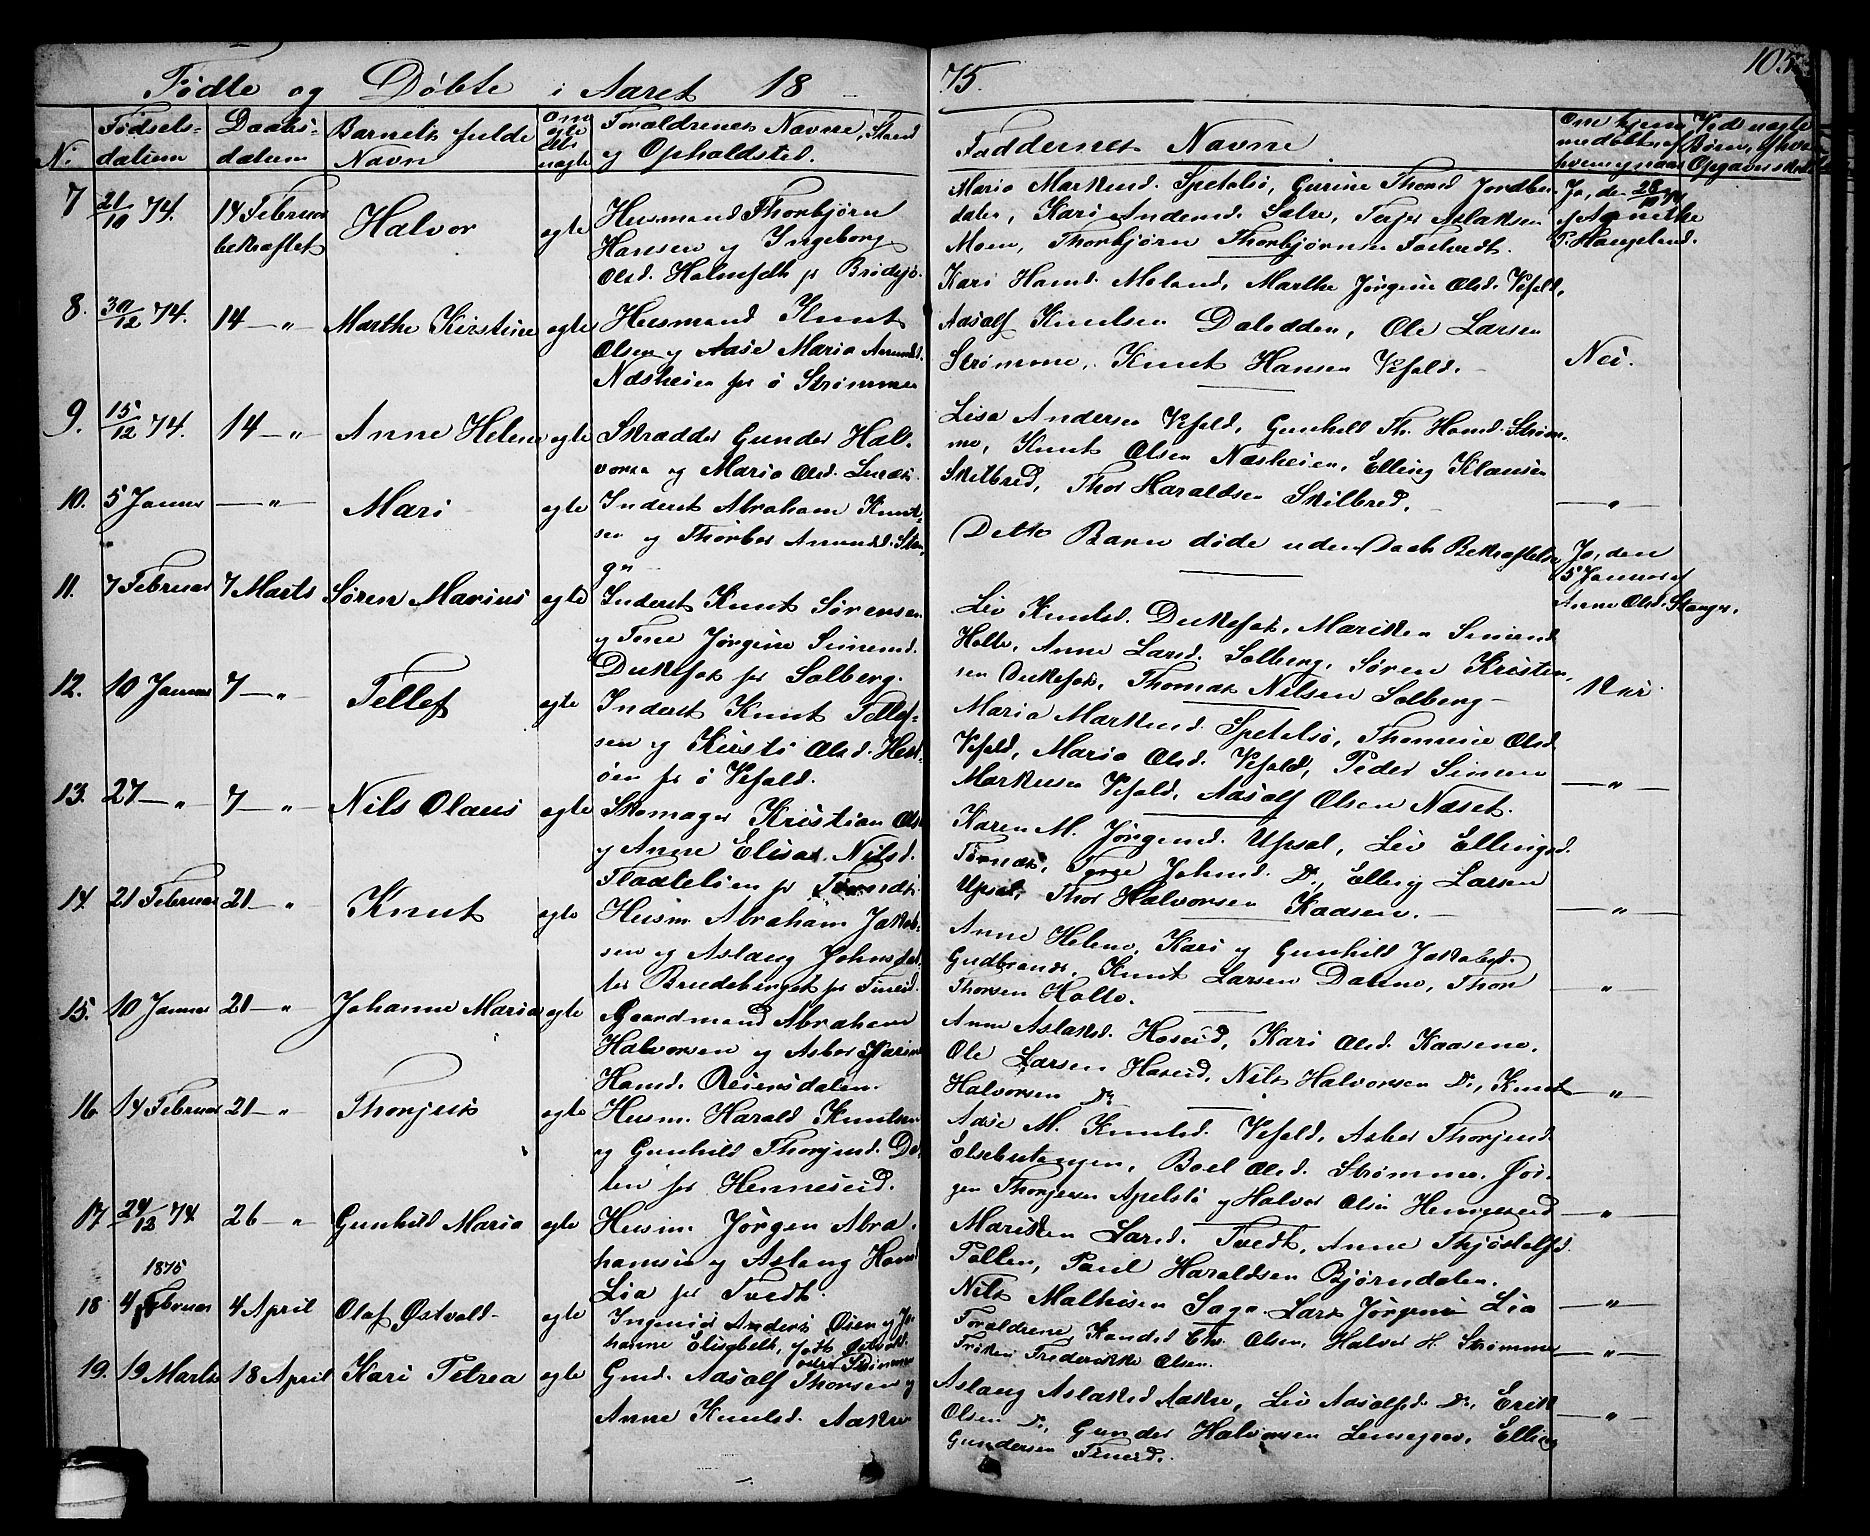 Fødte og Døbte i Aaret 1875.
105
N:
Fødsels-
datum
Daabs-
datum
Barnets fulde
Navn
Om
ægte
eller
uægte
Forældrenes Navne, Stand
og Opholdsted.
Faddernes Navne
7
21/10 74.
14 Februar
bekræftet
Halvor
ægte
Husmand Thorbjørn
Hansen og Ingeborg
Olsd.
Maria Markusd. Spetalsø, Gurine Thomsd. Jordbær-
dalen, Kari Andersd. Sætre, Terjer Aslaksen
Moen, Thorbjørn Thorbjørnsen
Ja, den 28/10 74
P. Haugeland.
8.
30/12 74.
14 — "
Marthe Kirstine
ægte
Husmand Knut
Olsen og Aase Maria
Næsheien for ö Strømmen
Kari Hansd. Moland, Marthe Jørgine Olsd. Vefald,
Aasolf Knutsen Dalodden, Ole Larsen
Strømmen, Knut Hansen Vefald.
Nei.
9.
15/12 74.
14 — "
Anne Helene
ægte
Skrædder Gunder Hal-
vorsen og Maria Olsd.
Lisa Andersen Vefald, Gunhild Th. Hansd. Strøm-
me, Knut Olsen Næsheien, Elling Klausen
Skilbred, Thor Haraldsen Skilbred.
— " —
10.
5 Januar
— "
Mari
ægte
Inderst Abraham Knut-
sen og Thorber
Dette Barn døde uden Daabs Bekræftelse
Ja, den
5 Januar af
Anne Olsd. Stanges.
11.
7 Februar
7 Marts
Søren Marius
ægte
Inderst Knut Sørensen
og Tone Jørgine Simensd.
Dukefos for Solberg.
Liv Knutsd. Dukefos, Mariken Simensd.
Holte, Anne Larsd. Solberg, Søren Kristen-
sen Dukefos, Thomas Nilsen Solberg
Nei
12.
10 Januar
7 — "
Tellef
ægte
Inderst Knut Tellef-
sen og Kirsti Olsd.
for ö Vefald.
Maria Markusd. Spetalsø, Thomine Olsd.
Vefald, Maria Olsd. Vefald, Peder Simen
Markusen Vefald, Aasolf Olsen Næset.
— " —
13.
27 — "
7 — "
Nils Olaus
ægte
Skomager Kristian Ols.
og Anne Elisa Nilsd.
Karen M. Jørgensd. Upsal, Liv Ellingsd.
Johnsd. Do, Elling Larsen
Upsal, Thor Halvorsen Kaasen.
— " —
14.
21 Februar
21 — "
Knut
ægte
Husm. Abraham Jakob-
sen og Aslaug Johnsdat-
ter Brudeberget for
Anne Helene, Kari og Gunhild Jakobsd.
Gudbrands, Knut Larsen Dalene, Thor
Thorsen Holte.
— " —
15.
10 Januar
21 — "
Johanne Maria
ægte
Gaardmand Abraham
Halvorsen og Asber Karine
Hansd. Reiersdalen.
Anne Aslaksd. Haseid, Kari Olsd. Kaasene,
Ole Larsen Haseid, Nils Halvorsen Do, Knut
Halvorsen Do
— " —
16
14 Februar
21 — "
Thorjus
ægte
Husm. Harald Knutsen
og Gunhild Thorjusd. Da-
len for Henneseid.
Aase M. Knutsd. Vefald, Asber Thorjusd.
Elsebutangen, Boel Olsd. Strømme, Jør-
gen Thorjusen Apelstö og Halvor Olsen Henneseid
— " —
17
24/12 74
26 — "
Gunhild Maria
ægte
Husm. Jörgen Abra-
hamsen og Aslaug Hansd.
Lia for Tvedt.
Mariken Larsd. Tvedt, Anne Thjöstolfsd.
Pollen, Paul Haraldsen Bjørndalen.
Nils Mathisen Saga. Lars Jørgensen Lia
— " —
1875
18
4 Februar
4 April
Olaf Østvold
ægte
Ingeniør Anders Olsen og Jo-
hanne Elisabeth, født Østvold
Strømme
Forældrene, Kandid. Chr. Olsen, Halvor H. Strømme
Frøken Frederikke Olsen.
— " —
19.
19 Marts
18 April
Kari Petrea
ægte
Gmd. Aasolf Thorsen og
Anne Knutsd. Aakre
Aslaug Aslaksd. Aakre, Liv Aasolfsd. Do, Erik
Olsen Do, Gunder Halvorsen, Elling
Gundersen
— " —